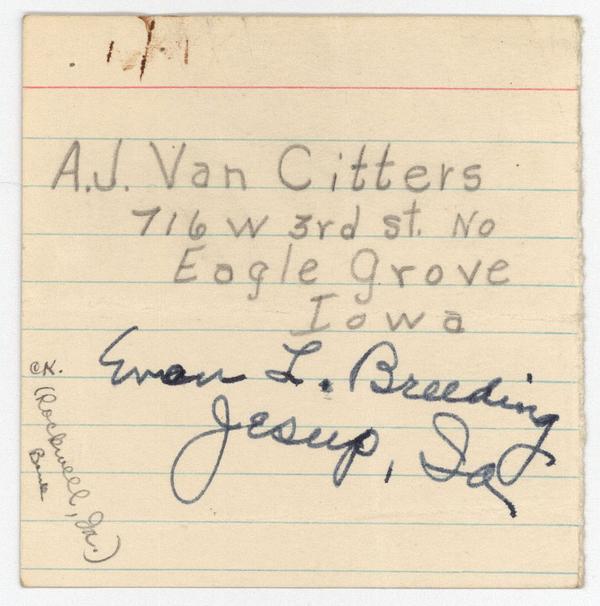 A.J. Van Citters
716 W 3rd st. No
Eagle Grove
Iowa
Evan L. Breeding
Jesup, Ia
CK.
(Rockwell, Ia.)
Bank